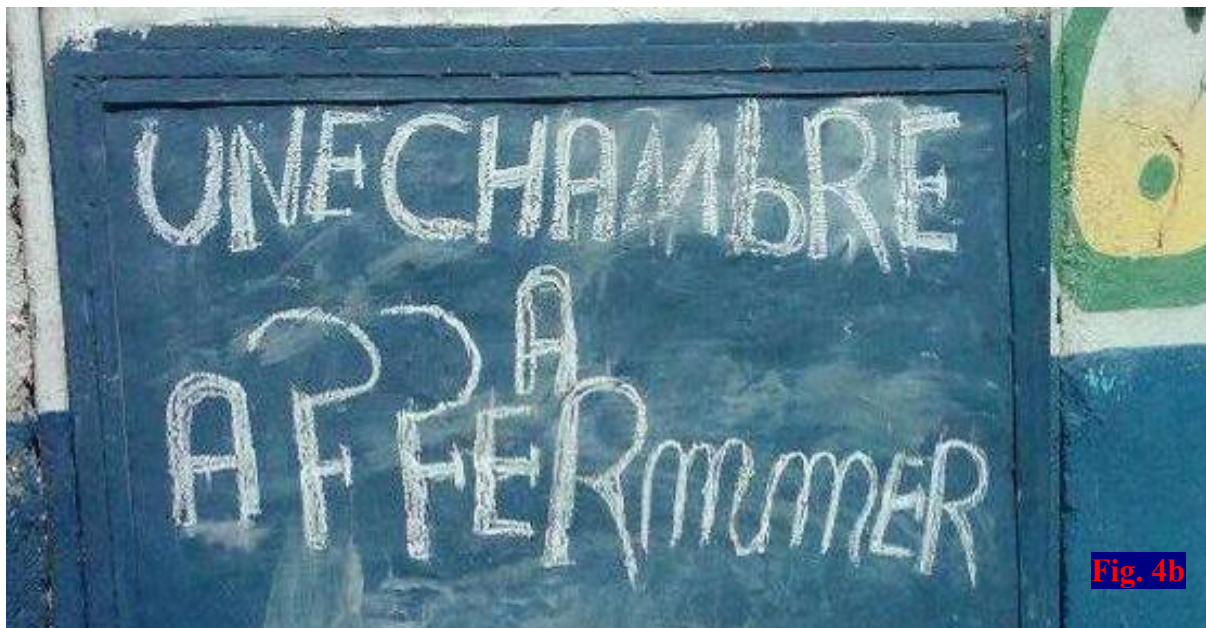 UNE CHAMbRE
A
AFFERmmER
Fig. 4b